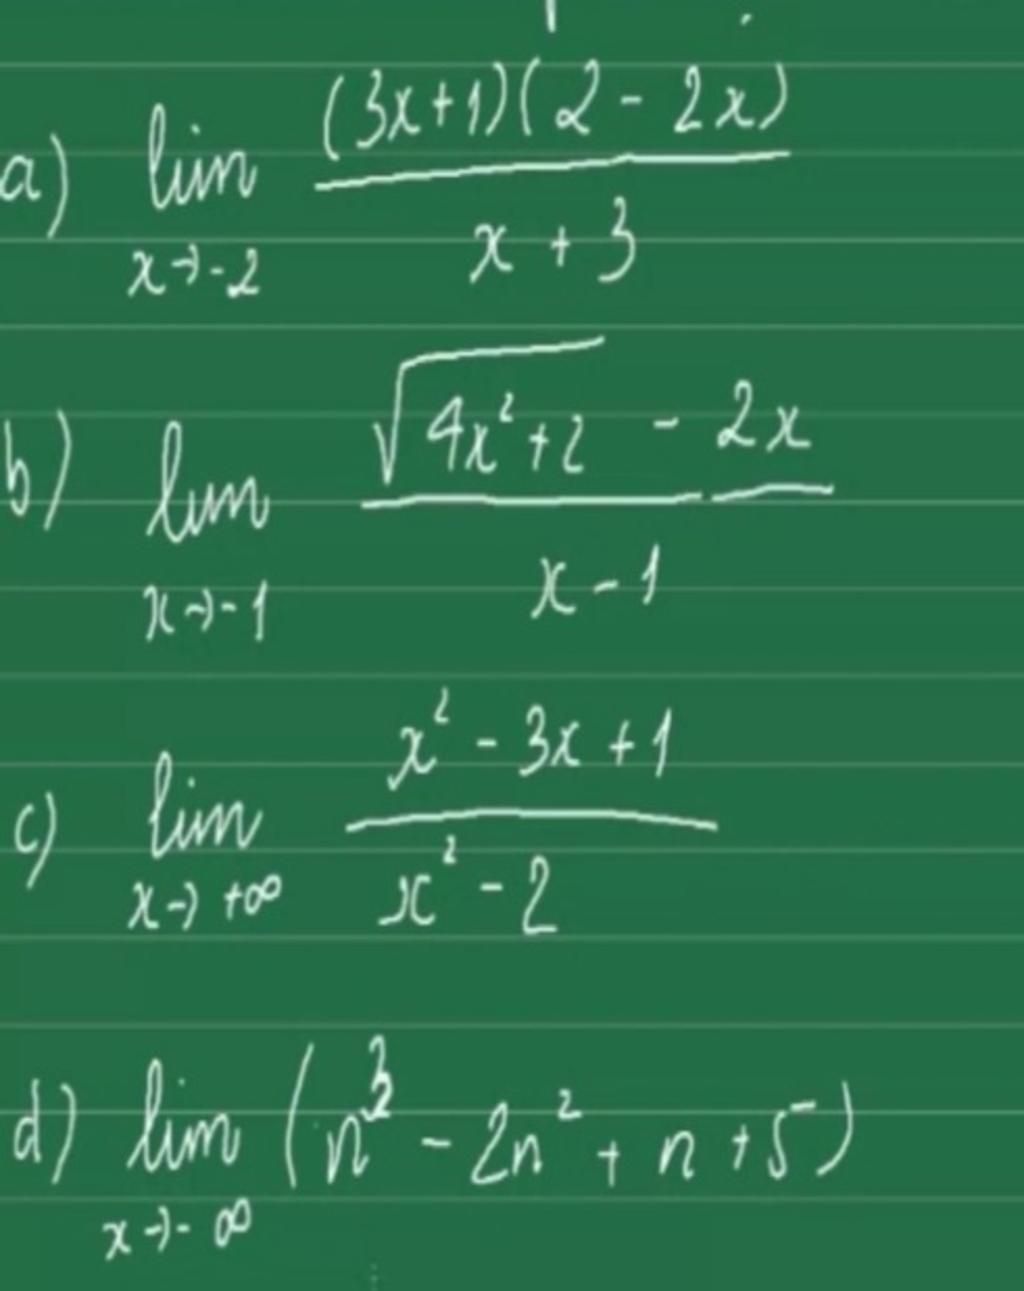 a) lim x→-2 (3x+1)(2-2x) / x+3
b) lim x→-1 √4x²+2 - 2x / x-1
c) lim x→+∞ x²-3x+1 / x²-2
d) lim x→-∞ (n³-2n²+n+5)